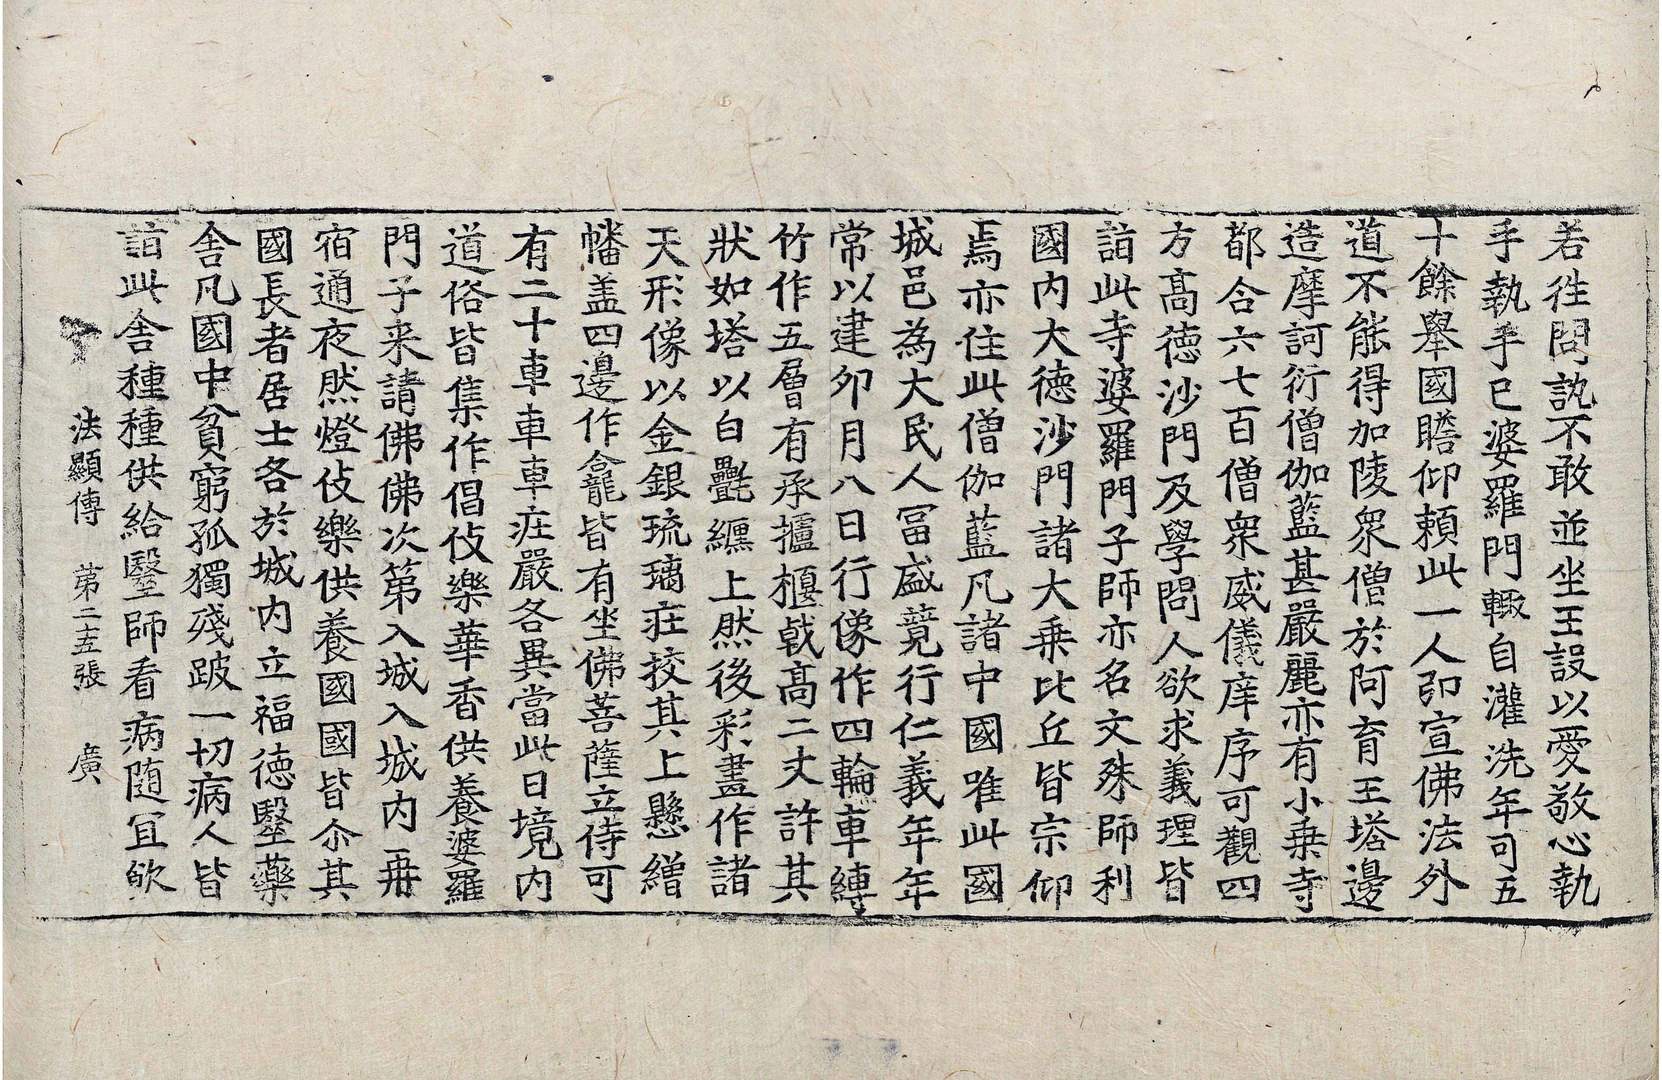 若徃問訊不敢並坐王設以愛敬心執
手執手已婆羅門輙自灌洗年可五
十餘舉國瞻仰頼此一人卽宣佛法外
道不能得加陵衆僧於阿育王塔邊
造摩訶衍僧伽藍甚嚴麗亦有小乗寺
都合六七百僧衆威儀庠序可觀四
方髙德沙門及學問人欲求義理皆
詣此寺婆羅門子師亦名文殊師利
國内大德沙門諸大乗比丘皆宗仰
焉亦住此僧伽藍凡諸中國唯此國
城邑為大民人冨盛競行仁義年年
常以建卯月八日行像作四輪車縛
竹作五層有承攎椻㦸髙二丈許其
狀如塔以白㲲纒上然後彩畫作諸
天形像以金銀琉璃莊挍其上懸繒
幡盖四邊作龕皆有坐佛菩薩立侍可
有二十車車車莊嚴各異當此日境内
道俗皆集作倡伎樂華香供養婆羅
門子来請佛佛次第入城入城内再
宿通夜然燈伎樂供養國國皆尒其
國長者居士各於城内立福德毉藥
舎凡國中貧窮孤獨殘跛一切病人皆
詣此舎種種供給毉師看病随冝飲
法顯傳 第二五張 廣